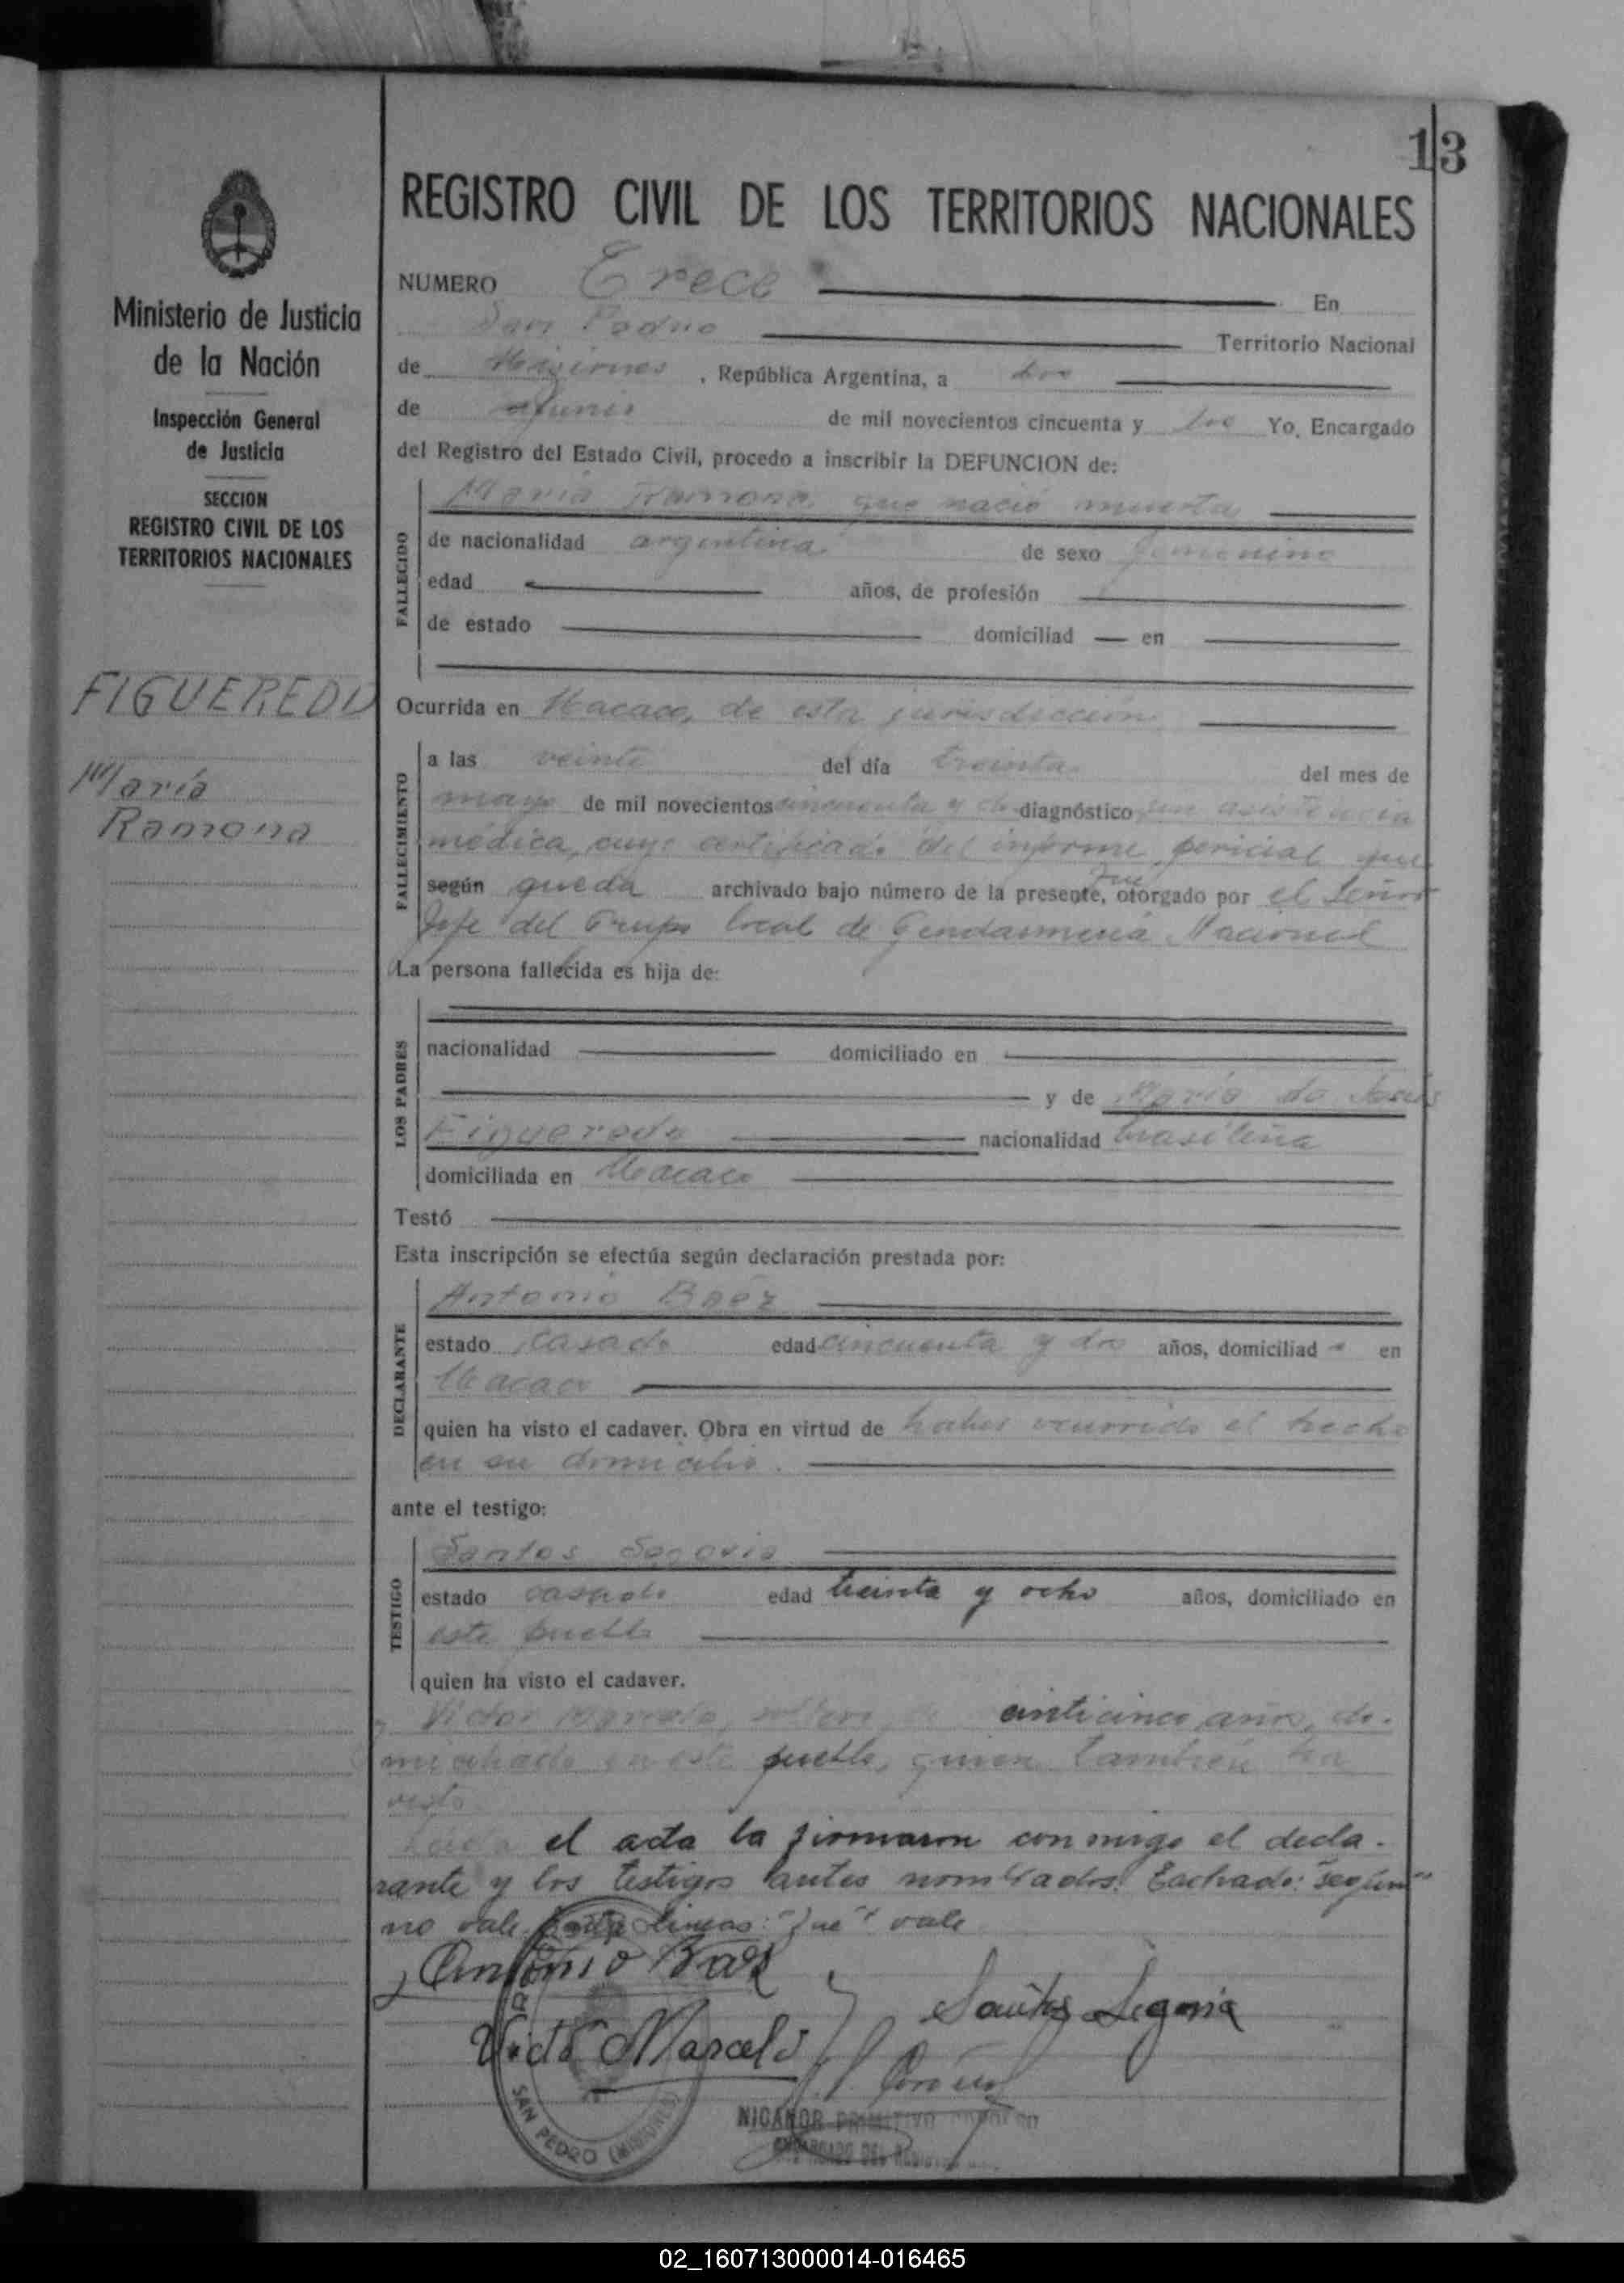 13
REGISTRO CIVIL DE LOS TERRITORIOS NACIONALES
Ministerio de Justicia
de la Nación
Inspección General
de Justicia
SECCION
REGISTRO CIVIL DE LOS
TERRITORIOS NACIONALES
FIGUEREDO
María
Ramona
NUMERO Trece En
San Pedro Territorio Nacional
de Misiones , República Argentina, a dos
de Junio de mil novecientos cincuenta y dos Yo, Encargado
del Registro del Estado Civil, procedo a inscribir la DEFUNCION de:
FALLECIDO
María Ramona que nació muerta
de nacionalidad argentina de sexo femenino
edad años, de profesión
de estado domiciliad — en
Ocurrida en Macaco, de esta jurisdicción
FALLECIMIENTO
a las veinte del día treinta del mes de
mayo de mil novecientos cincuenta y dos diagnóstico sin asistencia
médica, cuyo certificado del informe pericial que
según queda archivado bajo número de la presente, fue otorgado por el Señor
Jefe del Grupo local de Gendarmería Nacional
La persona fallecida es hija de:
LOS PADRES
nacionalidad domiciliado en
y de María de Jesús
Figueredo nacionalidad brasileña
domiciliada en Macaco
Testó
Esta inscripción se efectúa según declaración prestada por:
DECLARANTE
Antonio Baez
estado casado edad cincuenta y dos años, domiciliad o en
Macaco
quien ha visto el cadaver. Obra en virtud de haber ocurrido el hecho
en su domicilio.
ante el testigo:
TESTIGO
Santos Segovia
estado casado edad treinta y ocho años, domiciliado en
este pueblo
quien ha visto el cadaver.
y Victor Marcelo, soltero, de veinticinco años, do-
miciliado en este pueblo, quien también ha
visto
Leida el acta la firmaron conmigo el decla-
rante y los testigos antes nombrados. Tachado: "según"
no vale. Entre lineas: "fue" vale
Antonio Baez
Santos Segovia
Victor Marcelo
SAN PEDRO (MISIONES)
NICANOR PRIMITIVO
ENCARGADO DEL REGISTRO
02_160713000014-016465